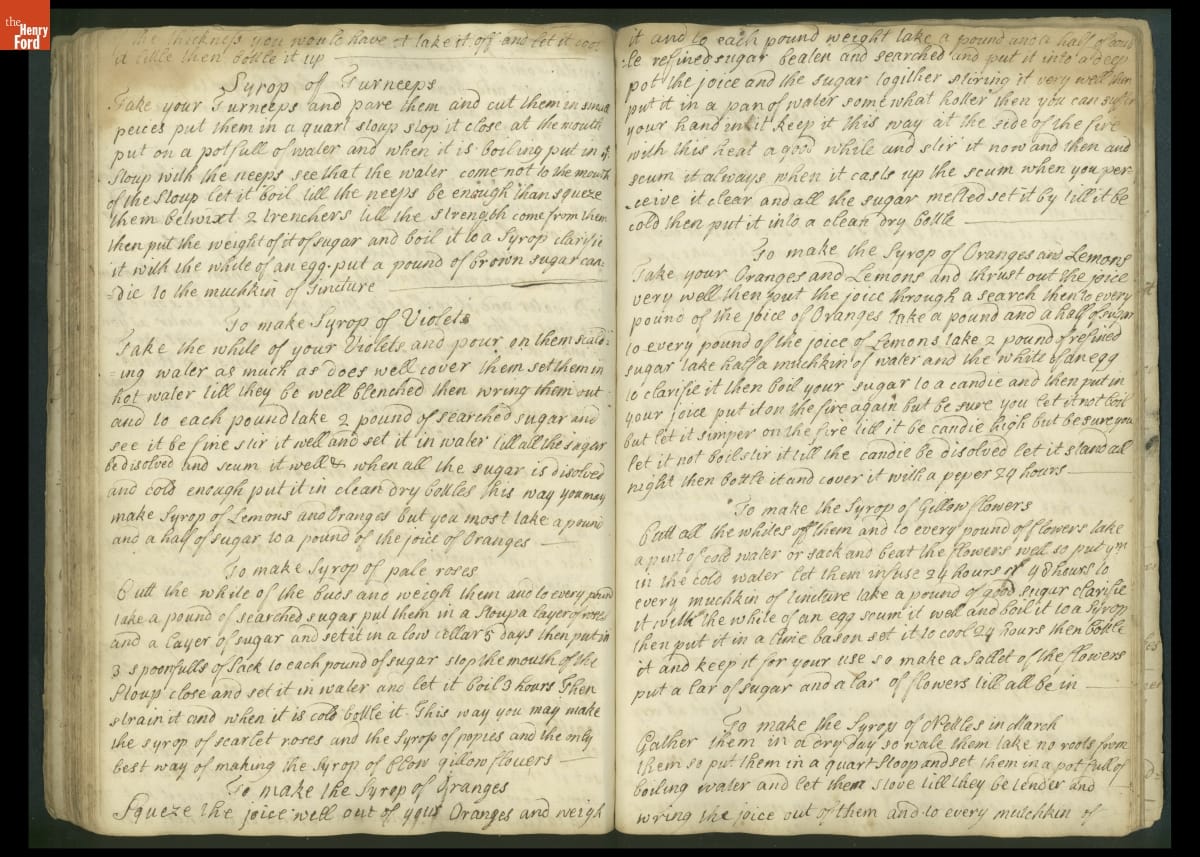 the Henry Ford
the thickness you would have it take it off and let it cool
a little then bottle it up
Syrop of Turneeps
Take your Turneeps and pare them and cut them in small
peices put them in a quart stoup stop it close at the mouth
put on a potfull of water and when it is boiling put in ye
Stoup with the neeps see that the water come not to the mouth
of the Stoup let it boil till the neeps be enough than squeze
them betwixt 2 trenchers till the strength come from them
then put the weight of it of sugar and boil it to a Syrop clarifie
it with the white of an egg put a pound of brown sugar can=
=die to the muchkin of Tincture
To make Syrop of Violets
Take the while of your Violets and pour on them scald=
=ing water as much as does well cover them set them in
hot water till they be well blenched then wring them out
and to each pound take 2 pound of searched sugar and
see it be fine stir it well and set it in water till all the sugar
be disolved and scum it well & when all the sugar is disolved
and cold enough put it in clean dry bottles this way you may
make Syrop of Lemons and Oranges but you most take a pound
and a half of sugar to a pound of the joice of Oranges
To make Syrop of pale roses
Cutt the white of the buds and weigh them and to every pound
take a pound of searched sugar put them in a Stoup a layer of roses
and a layer of sugar and set it in a low cellar 5 days then put in
3 spoonfulls of Sack to each pound of sugar stop the mouth of the
Stoup close and set it in water and let it boil 3 hours Then
strain it and when it is cold bottle it. This way you may make
the syrop of scarlet roses and the Syrops of popies and the only
best way of making the Syrop of Clow gillowflowers
To make the Syrop of Oranges
Squeze the joice well out of your Oranges and weigh
it and to each pound weight take a pound and a half of doub
le refined sugar beaten and searched and put it into a deep
pot the joice and the sugar togither stiring it very well then
put it in a pan of water somewhat hotter then you can suffer
your hand in it keep it this way at the side of the fire
with this heat a good while and stir it now and then and
scum it always when it casts up the scum when you per-
-ceive it clear and all the sugar melted set it by till it be
cold then put it into a clean dry bottle
To make the Syrop of Oranges and Lemons
Take your Oranges and Lemons and thrust out the joice
very well then put the joice through a search then to every
pound of the joice of Oranges take a pound and a half of sugar
to every pound of the joice of Lemons take 2 pound of refined
sugar take half a muchkin of water and the white of an egg
to clarifie it then boil your sugar to a candie and then put in
your joice put it on the fire again but be sure you let it not boil
but let it simper on the fire till it be candie high but be sure you
let it not boil stir it till the candie be disolved let it stand all
night then bottle it and cover it with a peper 24 hours
To make the Syrop of Gillowflowers
Cutt all the whites off them and to every pound of flowers take
a pint of cold water or sack and beat the flowers well so put ym
in the cold water let them infuse 24 hours or 48 hours to
every muchkin of tincture take a pound of good sugar clarifie
it with the white of an egg scum it well and boil it to a Syrop
then put it in a bason set it to cool 24 hours then bottle
it and keep it for your use so make a Sallet of the flowers
put a lar of sugar and a lar of flowers till all be in
To make the Syrop of Nettles in March
Gather them in a dry day so wale them take no roots from
them so put them in a quart Stoop and set them in a pot full of
boiling water and let them stove till they be tender and
wring the joice out of them and to every mutchkin of